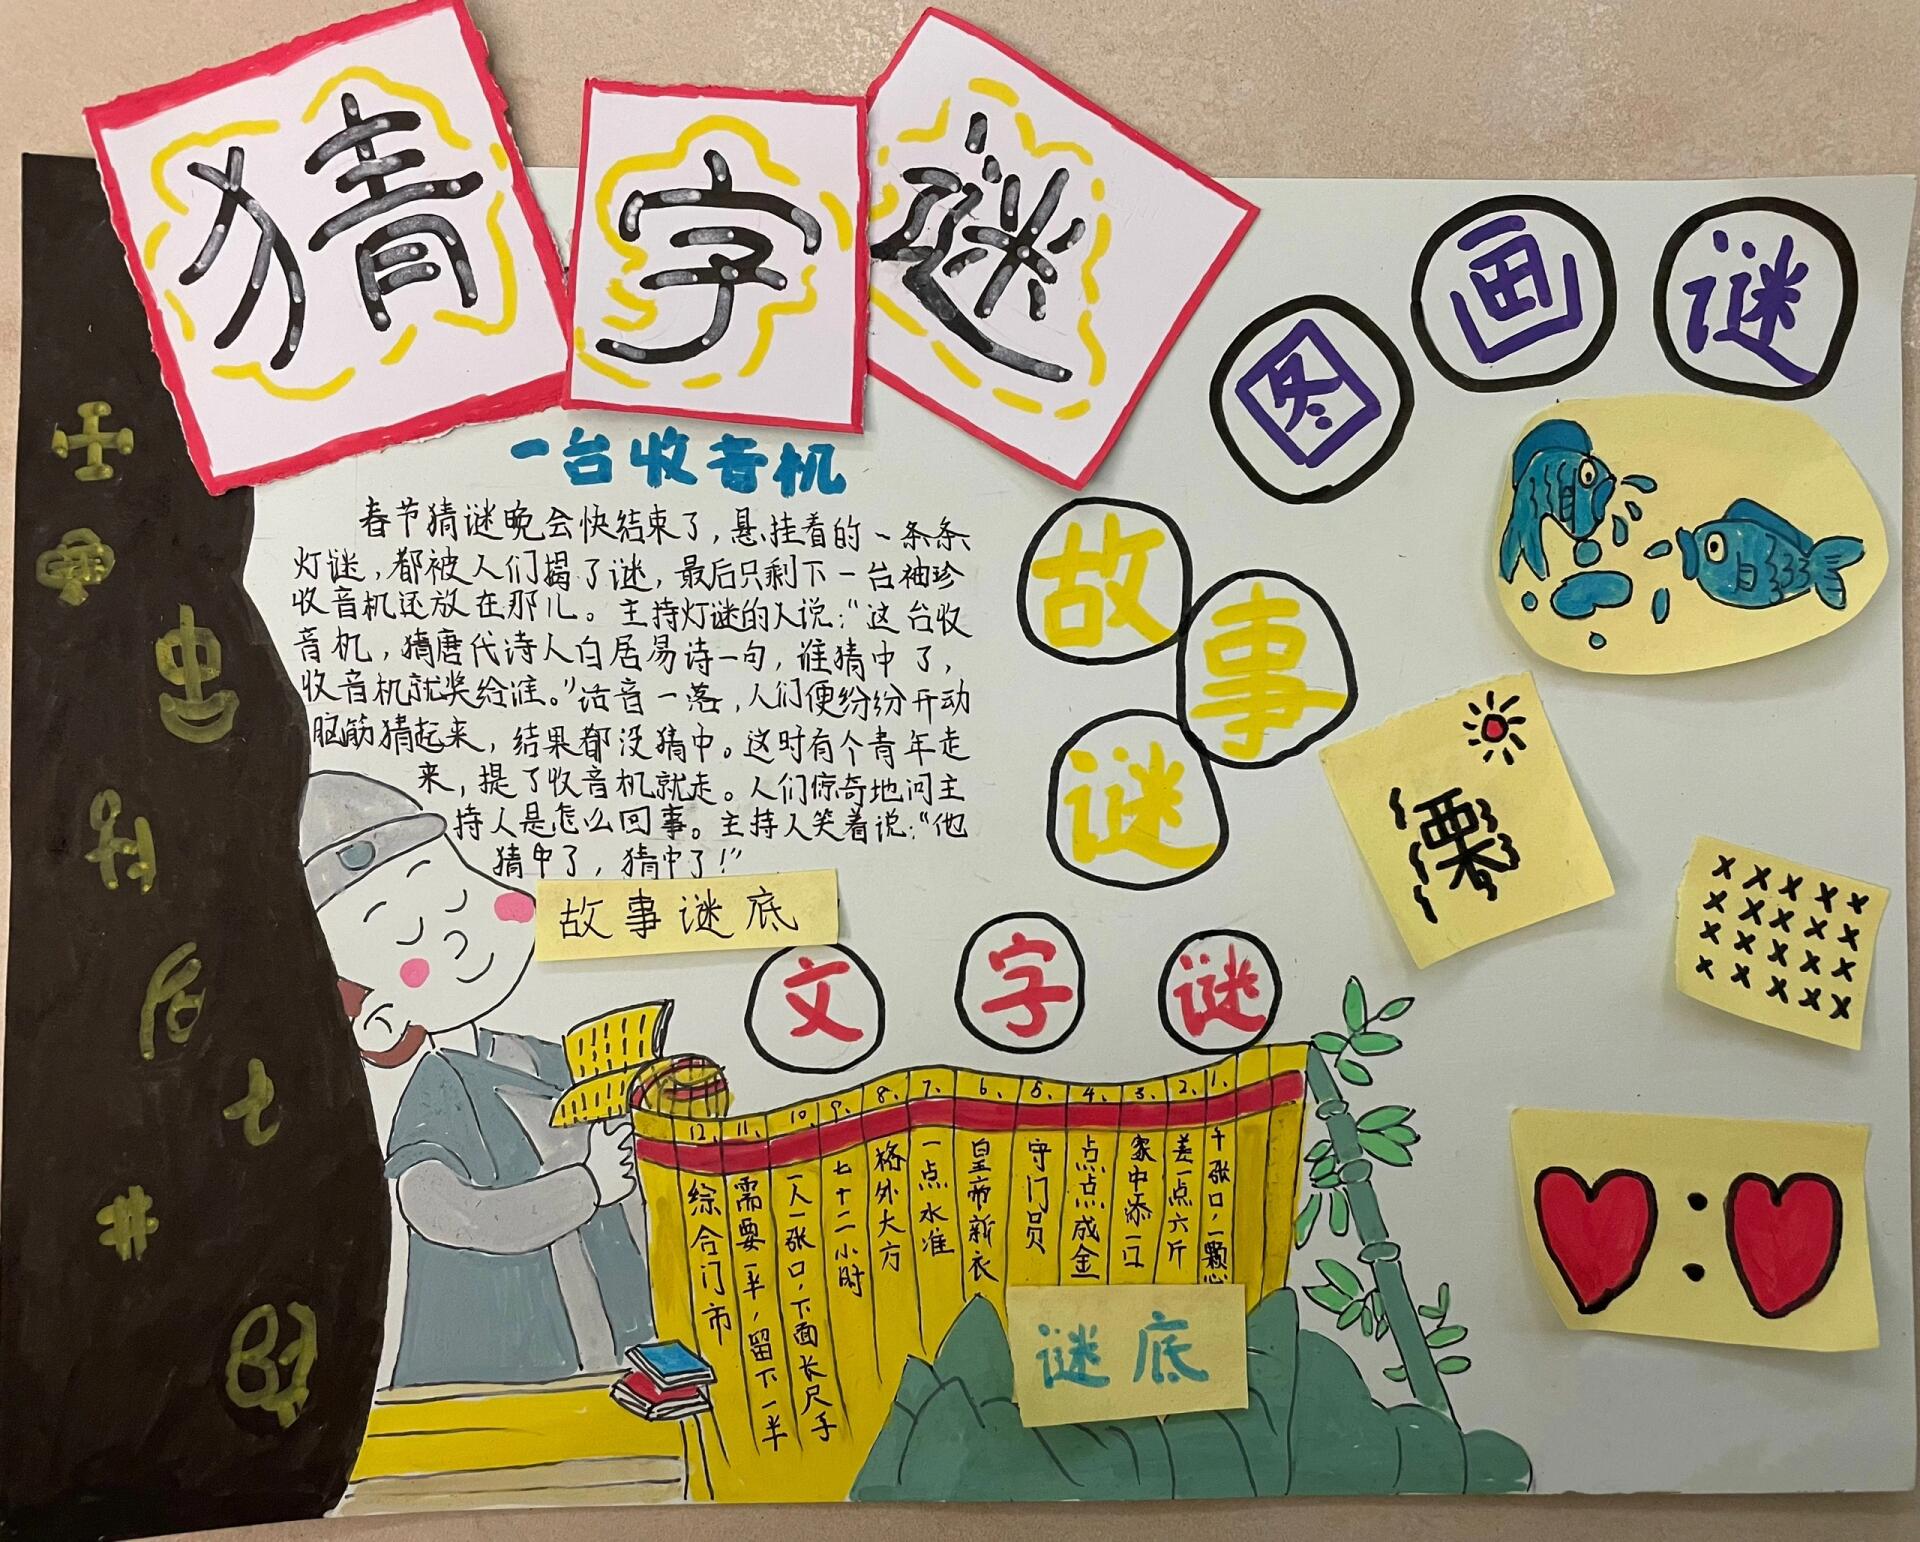 猜字谜
图画谜
一台收音机
春节猜谜晚会快结束了，悬挂着的一条条
灯谜，都被人们揭了谜，最后只剩下一台袖珍
收音机还放在那儿。主持灯谜的人说：“这台收
音机，猜唐代诗人白居易诗一句，谁猜中了，
收音机就奖给谁。”话音一落，人们便纷纷开动
脑筋猜起来，结果都没猜中。这时有个青年走
来，提了收音机就走。人们惊奇地问主
持人是怎么回事。主持人笑着说：“他
猜中了，猜中了！”
故事谜底
故事谜
栗
x x x x x
x x x x x
x x x x x
x x x x x
文字谜
1、千张口，一颗心
2、差一点六斤
3、家中添一口
4、点点成金
5、守门员
6、皇帝新衣
7、一点水准
8、格外大方
9、七十二小时
10、一人一张口，下面长只手
11、需要一半，留下一半
12、综合门市
谜底